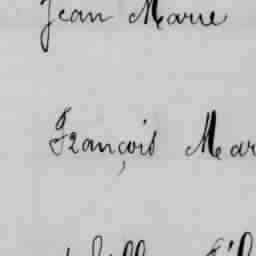 Jean Marie
François Mar